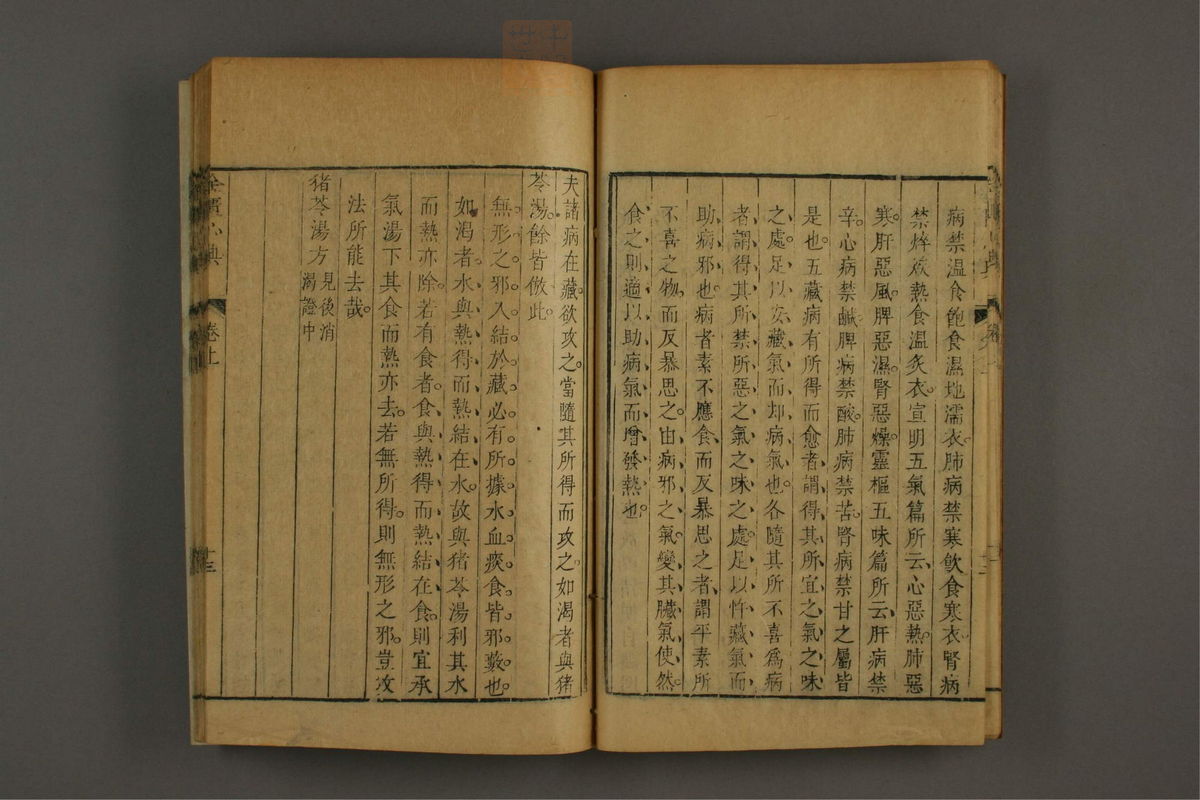 病禁溫食飽食濕地濡衣肺病禁寒飲食寒衣腎病
禁焠㶼熱食溫炙衣宣明五氣篇所云心惡熱肺惡
寒肝惡風脾惡濕腎惡燥靈樞五味篇所云肝病禁
辛心病禁鹹脾病禁酸肺病禁苦腎病禁甘之屬皆
是也五藏病有所得而愈者謂得其所宜之氣之味
之處足以安藏氣而却病氣也各隨其所不喜爲病
者謂得其所禁所惡之氣之味之處足以忤藏氣而
助病邪也病者素不應食而反暴思之者謂平素所
不喜之物而反暴思之由病邪之氣變其臟氣使然
食之則適以助病氣而增發熱也
夫諸病在藏欲攻之當隨其所得而攻之如渴者與猪
苓湯餘皆倣此
無形之邪入結於藏必有所據水血痰食皆邪藪也
如渴者水與熱得而熱結在水故與猪苓湯利其水
而熱亦除若有食者食與熱得而熱結在食則宜承
氣湯下其食而熱亦去若無所得則無形之邪豈攻
法所能去哉
猪苓湯方 見後消
渴證中
金匱心典
卷上
十三